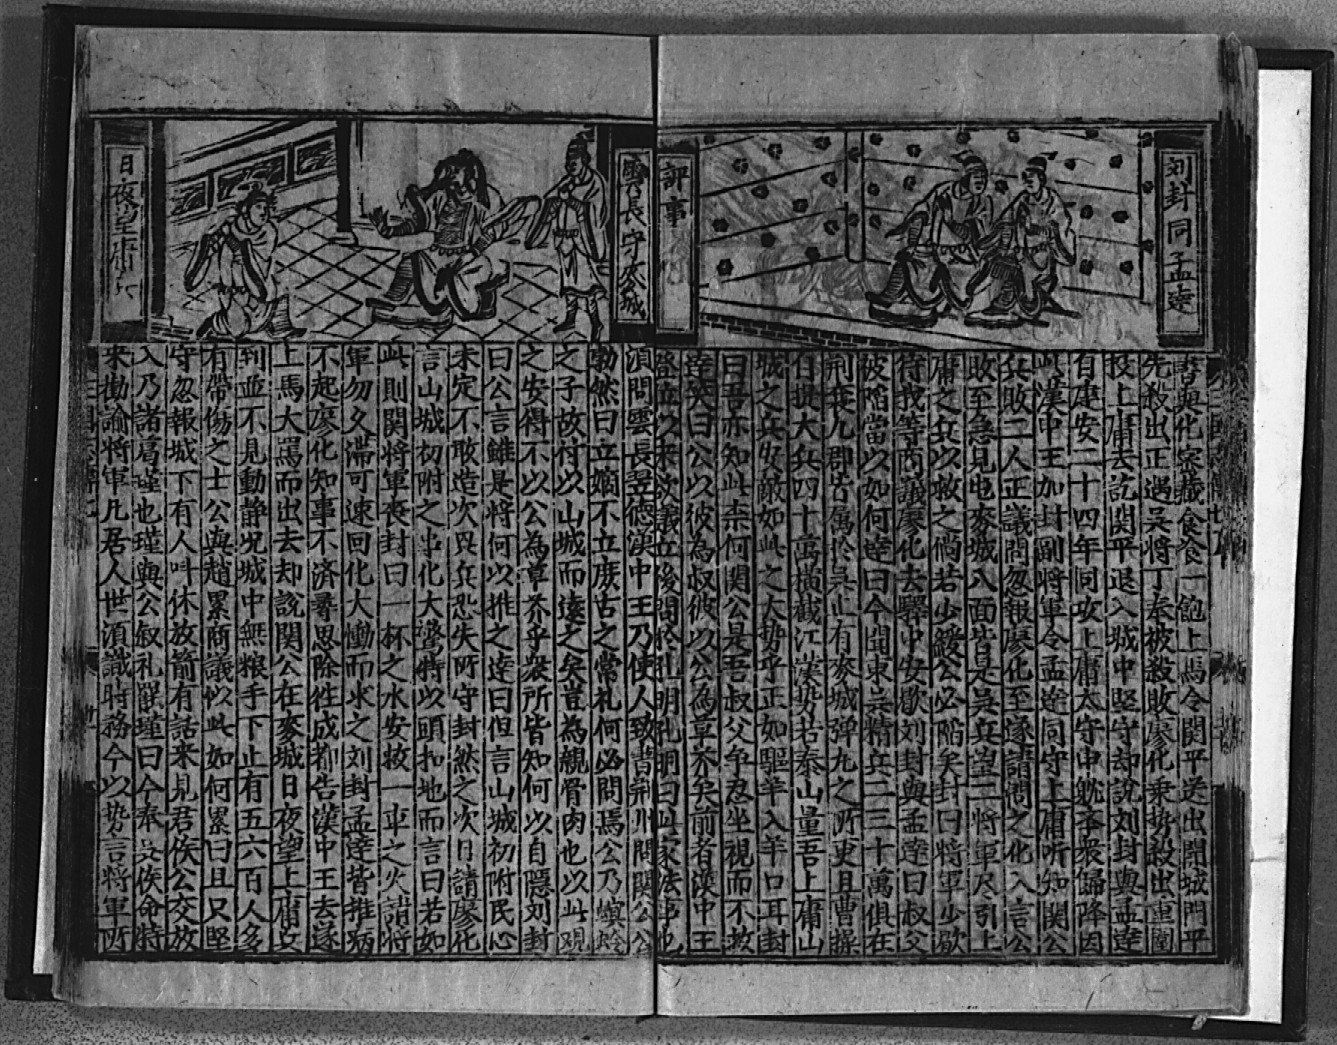 刘封同孟達
評事
書與化密藏食食一飽上馬令関平送出開城門平
先殺出正遇吳將丁奉被殺敗廖化乘势殺出重圍
投上庸去訖関平退入城中堅守却說刘封與孟達
有建安二十四年同攻上庸太守申躭率衆歸降因
此漢中王加封副將軍令孟達同守上庸听知関公
兵敗二人正議間忽報廖化至遂請問之化入言公
敗至急見屯麥城八面皆是吳兵望二將軍尽引上
庸之兵以救之倘若少緩公必陷矣封曰將軍少歇
待我等商議廖化去驛中安歇刘封與孟達曰叔父
被陷當以如何達曰今聞東吳精兵二三十萬俱在
荊襄九郡皆属於吳止有麥城弹丸之所更且曹操
自提大兵四十萬横截江漢势若泰山量吾上庸山
城之兵安敵如此之大势乎正如驅羊入羊口耳封
曰吾亦知此柰何関公是吾叔父争忍坐視而不救
達笑曰公以彼為叔彼以公為草芥矣前者漢中王
登立久未欲議立後問於孔明孔明曰此家法事也
雲長守麥城
日夜望庸
湏問雲長翌德漢中王乃使人致書荊州問関公公
勃然曰立嫡不立庶古之常礼何必問焉公乃螟蛉
之子故付以山城而遠之矣豈為親骨肉也以此观
之安得不以公為草芥乎衆所皆知何以自隱刘封
曰公言雖是將何以推之達曰但言山城初附民心
未定不敢造次興兵恐失所守封然之次日請廖化
言山城初附之事化大驚將以頭扣地而言曰若如
此則関將軍丧封曰一杯之水安救一車之火請將
軍勿久滯可速回化大慟而求之刘封孟達皆推病
不起廖化知事不濟尋思除徃成都告漢中王去遂
上馬大罵而出去却說関公在麥城日夜望上庸兵
到並不見動静况城中無粮手下止有五六百人多
有帶傷之士公與趙累商議似此如何累曰且只堅
守忽報城下有人呌休放箭有話來見君侯公交放
入乃諸葛瑾也瑾與公叙礼罷瑾曰今奉吳侯命特
来勸諭將軍凡居人世湏識時務今以势言將軍所